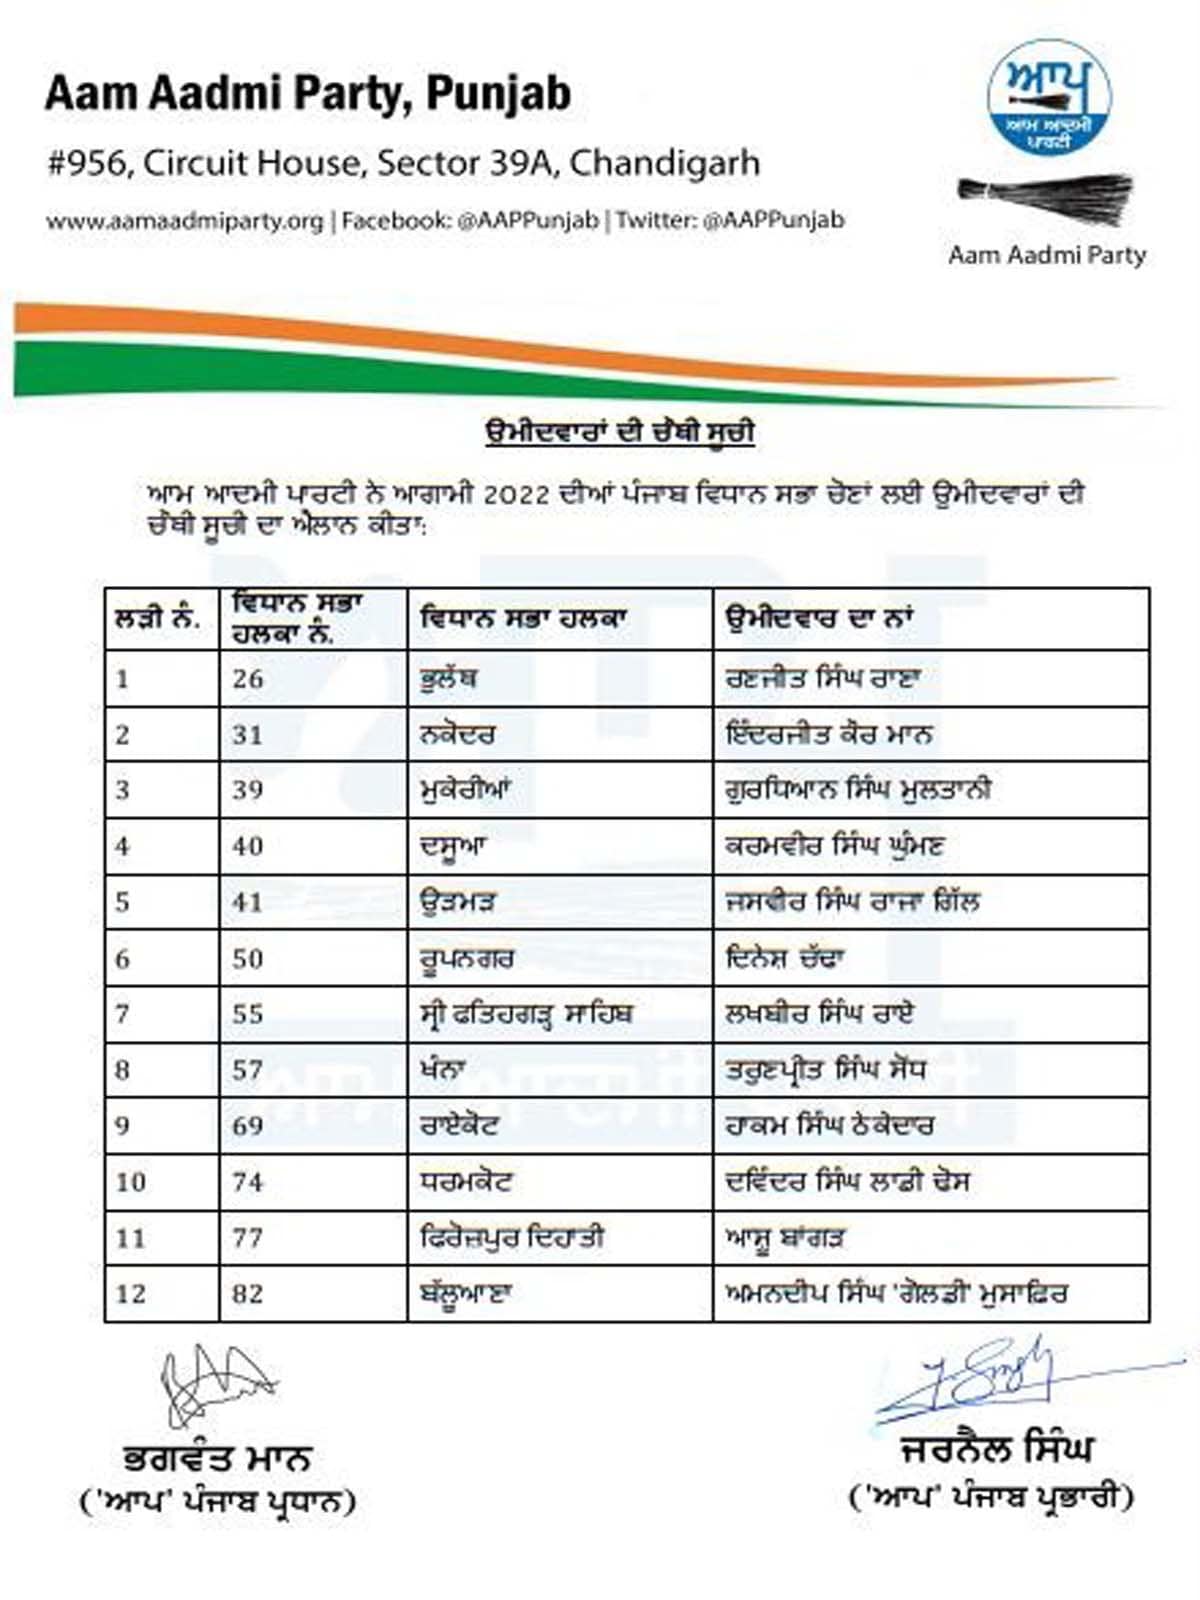 Aam Aadmi Party, Punjab
#956, Circuit House, Sector 39A, Chandigarh
www.aamaadmiparty.org | Facebook: @AAPPunjab | Twitter: @AAPPunjab
ਆਪ
ਆਮ ਆਦਮੀ
ਪਾਰਟੀ
Aam Aadmi Party
ਉਮੀਦਵਾਰਾਂ ਦੀ ਚੌਥੀ ਸੂਚੀ
ਆਮ ਆਦਮੀ ਪਾਰਟੀ ਨੇ ਆਗਾਮੀ 2022 ਦੀਆਂ ਪੰਜਾਬ ਵਿਧਾਨ ਸਭਾ ਚੋਣਾਂ ਲਈ ਉਮੀਦਵਾਰਾਂ ਦੀ
ਚੌਥੀ ਸੂਚੀ ਦਾ ਐਲਾਨ ਕੀਤਾ:
ਲੜੀ ਨੰ. ਵਿਧਾਨ ਸਭਾ ਹਲਕਾ ਨੰ. ਵਿਧਾਨ ਸਭਾ ਹਲਕਾ ਉਮੀਦਵਾਰ ਦਾ ਨਾਂ
1 26 ਭੁਲੱਥ ਰਣਜੀਤ ਸਿੰਘ ਰਾਣਾ
2 31 ਨਕੋਦਰ ਇੰਦਰਜੀਤ ਕੌਰ ਮਾਨ
3 39 ਮੁਕੇਰੀਆਂ ਗੁਰਧਿਆਨ ਸਿੰਘ ਮੁਲਤਾਨੀ
4 40 ਦਸੂਆ ਕਰਮਵੀਰ ਸਿੰਘ ਘੁੰਮਣ
5 41 ਊੜਮੜ ਜਸਵੀਰ ਸਿੰਘ ਰਾਜਾ ਗਿੱਲ
6 50 ਰੂਪਨਗਰ ਦਿਨੇਸ਼ ਚੱਢਾ
7 55 ਸ੍ਰੀ ਫਤਿਹਗੜ੍ਹ ਸਾਹਿਬ ਲਖਬੀਰ ਸਿੰਘ ਰਾਏ
8 57 ਖੰਨਾ ਤਰੁਣਪ੍ਰੀਤ ਸਿੰਘ ਸੋਂਧ
9 69 ਰਾਏਕੋਟ ਹਾਕਮ ਸਿੰਘ ਠੇਕੇਦਾਰ
10 74 ਧਰਮਕੋਟ ਦਵਿੰਦਰ ਸਿੰਘ ਲਾਡੀ ਢੋਸ
11 77 ਫਿਰੋਜ਼ਪੁਰ ਦਿਹਾਤੀ ਆਸ਼ੂ ਬਾਂਗੜ
12 82 ਬੱਲੂਆਣਾ ਅਮਨਦੀਪ ਸਿੰਘ 'ਗੋਲਡੀ' ਮੁਸਾਫ਼ਿਰ
ਭਗਵੰਤ ਮਾਨ
('ਆਪ' ਪੰਜਾਬ ਪ੍ਰਧਾਨ)
J. Singh
ਜਰਨੈਲ ਸਿੰਘ
('ਆਪ' ਪੰਜਾਬ ਪ੍ਰਭਾਰੀ)